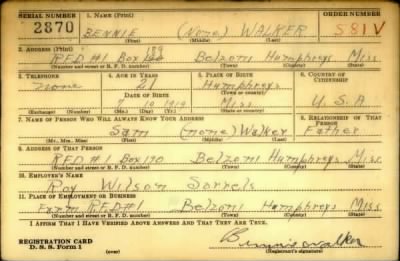 SERIAL NUMBER 1. NAME (Print) ORDER NUMBER
2870 BENNIE (None) WALKER S81V
(First) (Middle) (Last)
2. ADDRESS (Print)
R.F.D #1 Box 189 Belzoni Humphreys Miss
(Number and street or R. F. D. number) (Town) (County) (State)
3. TELEPHONE 4. AGE IN YEARS 5. PLACE OF BIRTH 6. COUNTRY OF CITIZENSHIP
none 21 Humphreys
(Town or county)
DATE OF BIRTH
7 19 1919 Miss U.S.A
(Exchange) (Number) (Mo.) (Day) (Yr.) (State or country)
7. NAME OF PERSON WHO WILL ALWAYS KNOW YOUR ADDRESS 8. RELATIONSHIP OF THAT PERSON
Sam (none) Walker Father
(Mr., Mrs., Miss) (First) (Middle) (Last)
9. ADDRESS OF THAT PERSON
R.F.D #1 Box 190 Belzoni Humphreys Miss
(Number and street or R. F. D. number) (Town) (County) (State)
10. EMPLOYER'S NAME
Roy Wilson Sorrels
11. PLACE OF EMPLOYMENT OR BUSINESS
Farm R.F.D #1 Belzoni Humphreys Miss
(Number and street or R. F. D. number) (Town) (County) (State)
I AFFIRM THAT I HAVE VERIFIED ABOVE ANSWERS AND THAT THEY ARE TRUE.
REGISTRATION CARD
D. S. S. Form 1 (over) Bennie walker
(Registrant's signature)